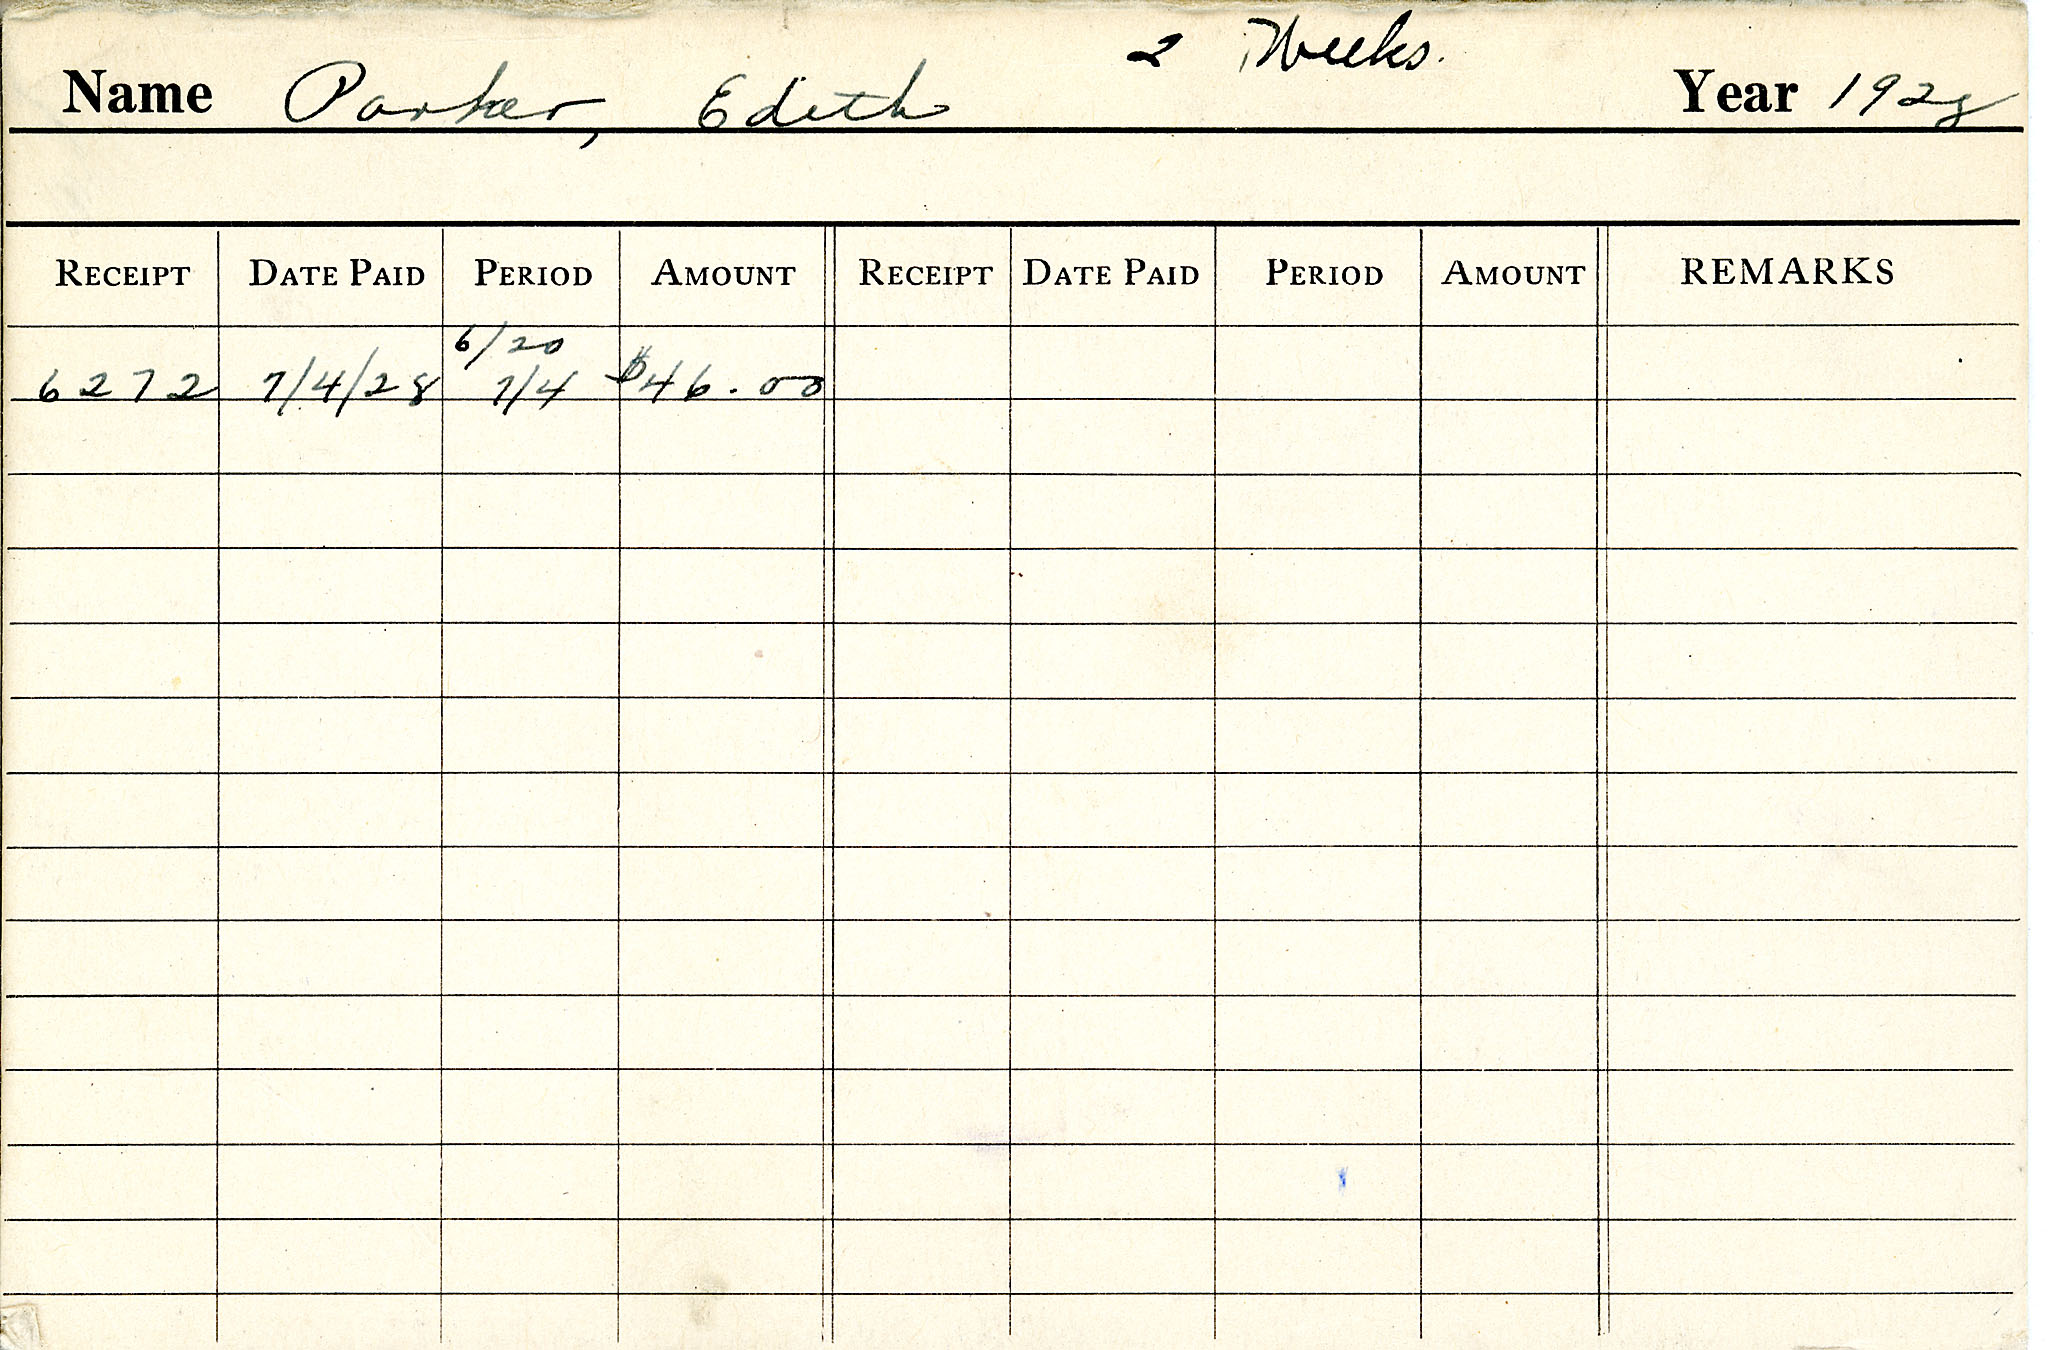 2 Weeks.
Name Parker, Edith Year 1928
RECEIPT DATE PAID PERIOD AMOUNT RECEIPT DATE PAID PERIOD AMOUNT REMARKS
6/20
6272 7/4/28 7/4 $46.00